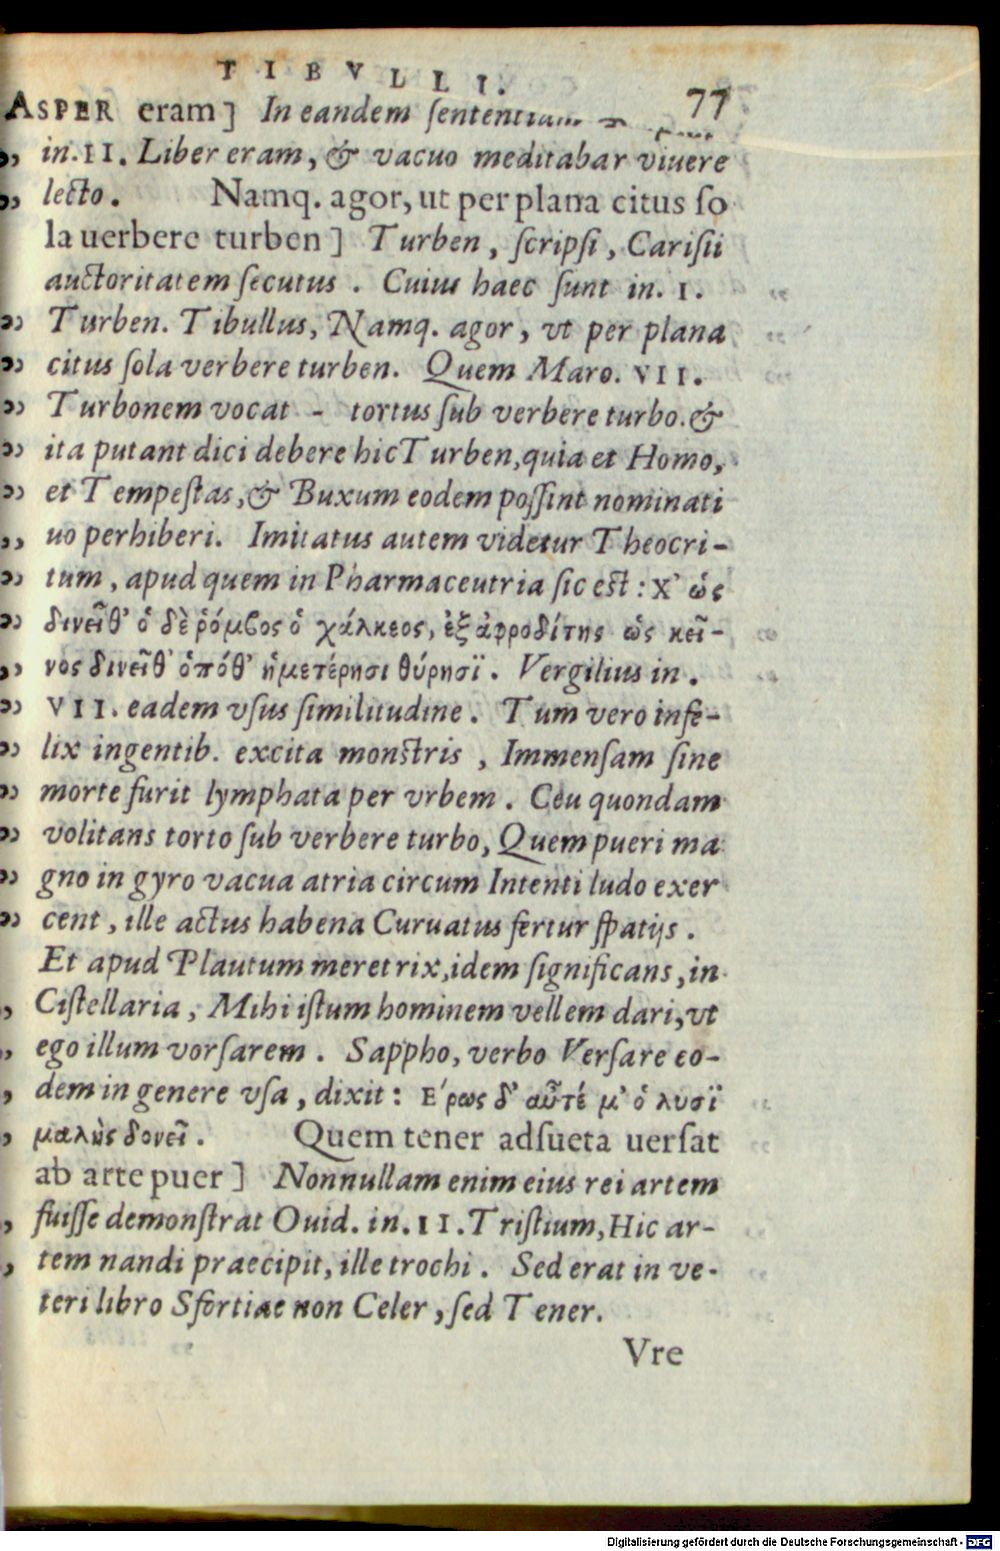 TIBVLLI.
77
ASPER eram] In eandem sententiam
,, in. II. Liber eram, & vacuo meditabar viuere
,, lecto. Namq. agor, ut per plana citus so
la uerbere turben] Turben, scripsi, Carisii
auctoritatem secutus. Cuius haec sunt in. I.
,, Turben. Tibullus, Namq. agor, vt per plana
,, citus sola verbere turben. Quem Maro. VII.
,, Turbonem vocat - tortus sub verbere turbo. &
,, ita putant dici debere hic Turben, quia et Homo,
,, et Tempestas, & Buxum eodem possint nominati
,, uo perhiberi. Imitatus autem videtur Theocri-
,, tum, apud quem in Pharmaceutria sic est: Χ' ὡς
,, δινεῖθ' ὁ δὲ ῥόμβος ὁ χάλκεος, ἐξ ἀφροδίτης ὡς κεῖ-
,, νος δινεῖθ' ὁπόθ' ἡμετέρησι θύρησϊ. Vergilius in.
,, VII. eadem vsus similitudine. Tum vero infe-
,, lix ingentib. excita monstris, Immensam sine
,, morte furit lymphata per vrbem. Ceu quondam
,, volitans torto sub verbere turbo, Quem pueri ma
,, gno in gyro vacua atria circum Intenti ludo exer
,, cent, ille actus habena Curuatus fertur spatijs.
Et apud Plautum meretrix, idem significans, in
, Cistellaria, Mihi istum hominem vellem dari, vt
, ego illum vorsarem. Sappho, verbo Versare eo-
, dem in genere vsa, dixit: Ε'ρως δ' αὖτέ μ' ὁ λυσϊ
, μαλὴς δονεῖ. Quem tener adsueta uersat
ab arte puer] Nonnullam enim eius rei artem
, fuisse demonstrat Ouid. in. II. Tristium, Hic ar-
, tem nandi praecipit, ille trochi. Sed erat in ve-
teri libro Sfortiae non Celer, sed Tener.
Vre
Digitalisierung gefördert durch die Deutsche Forschungsgemeinschaft - DFG